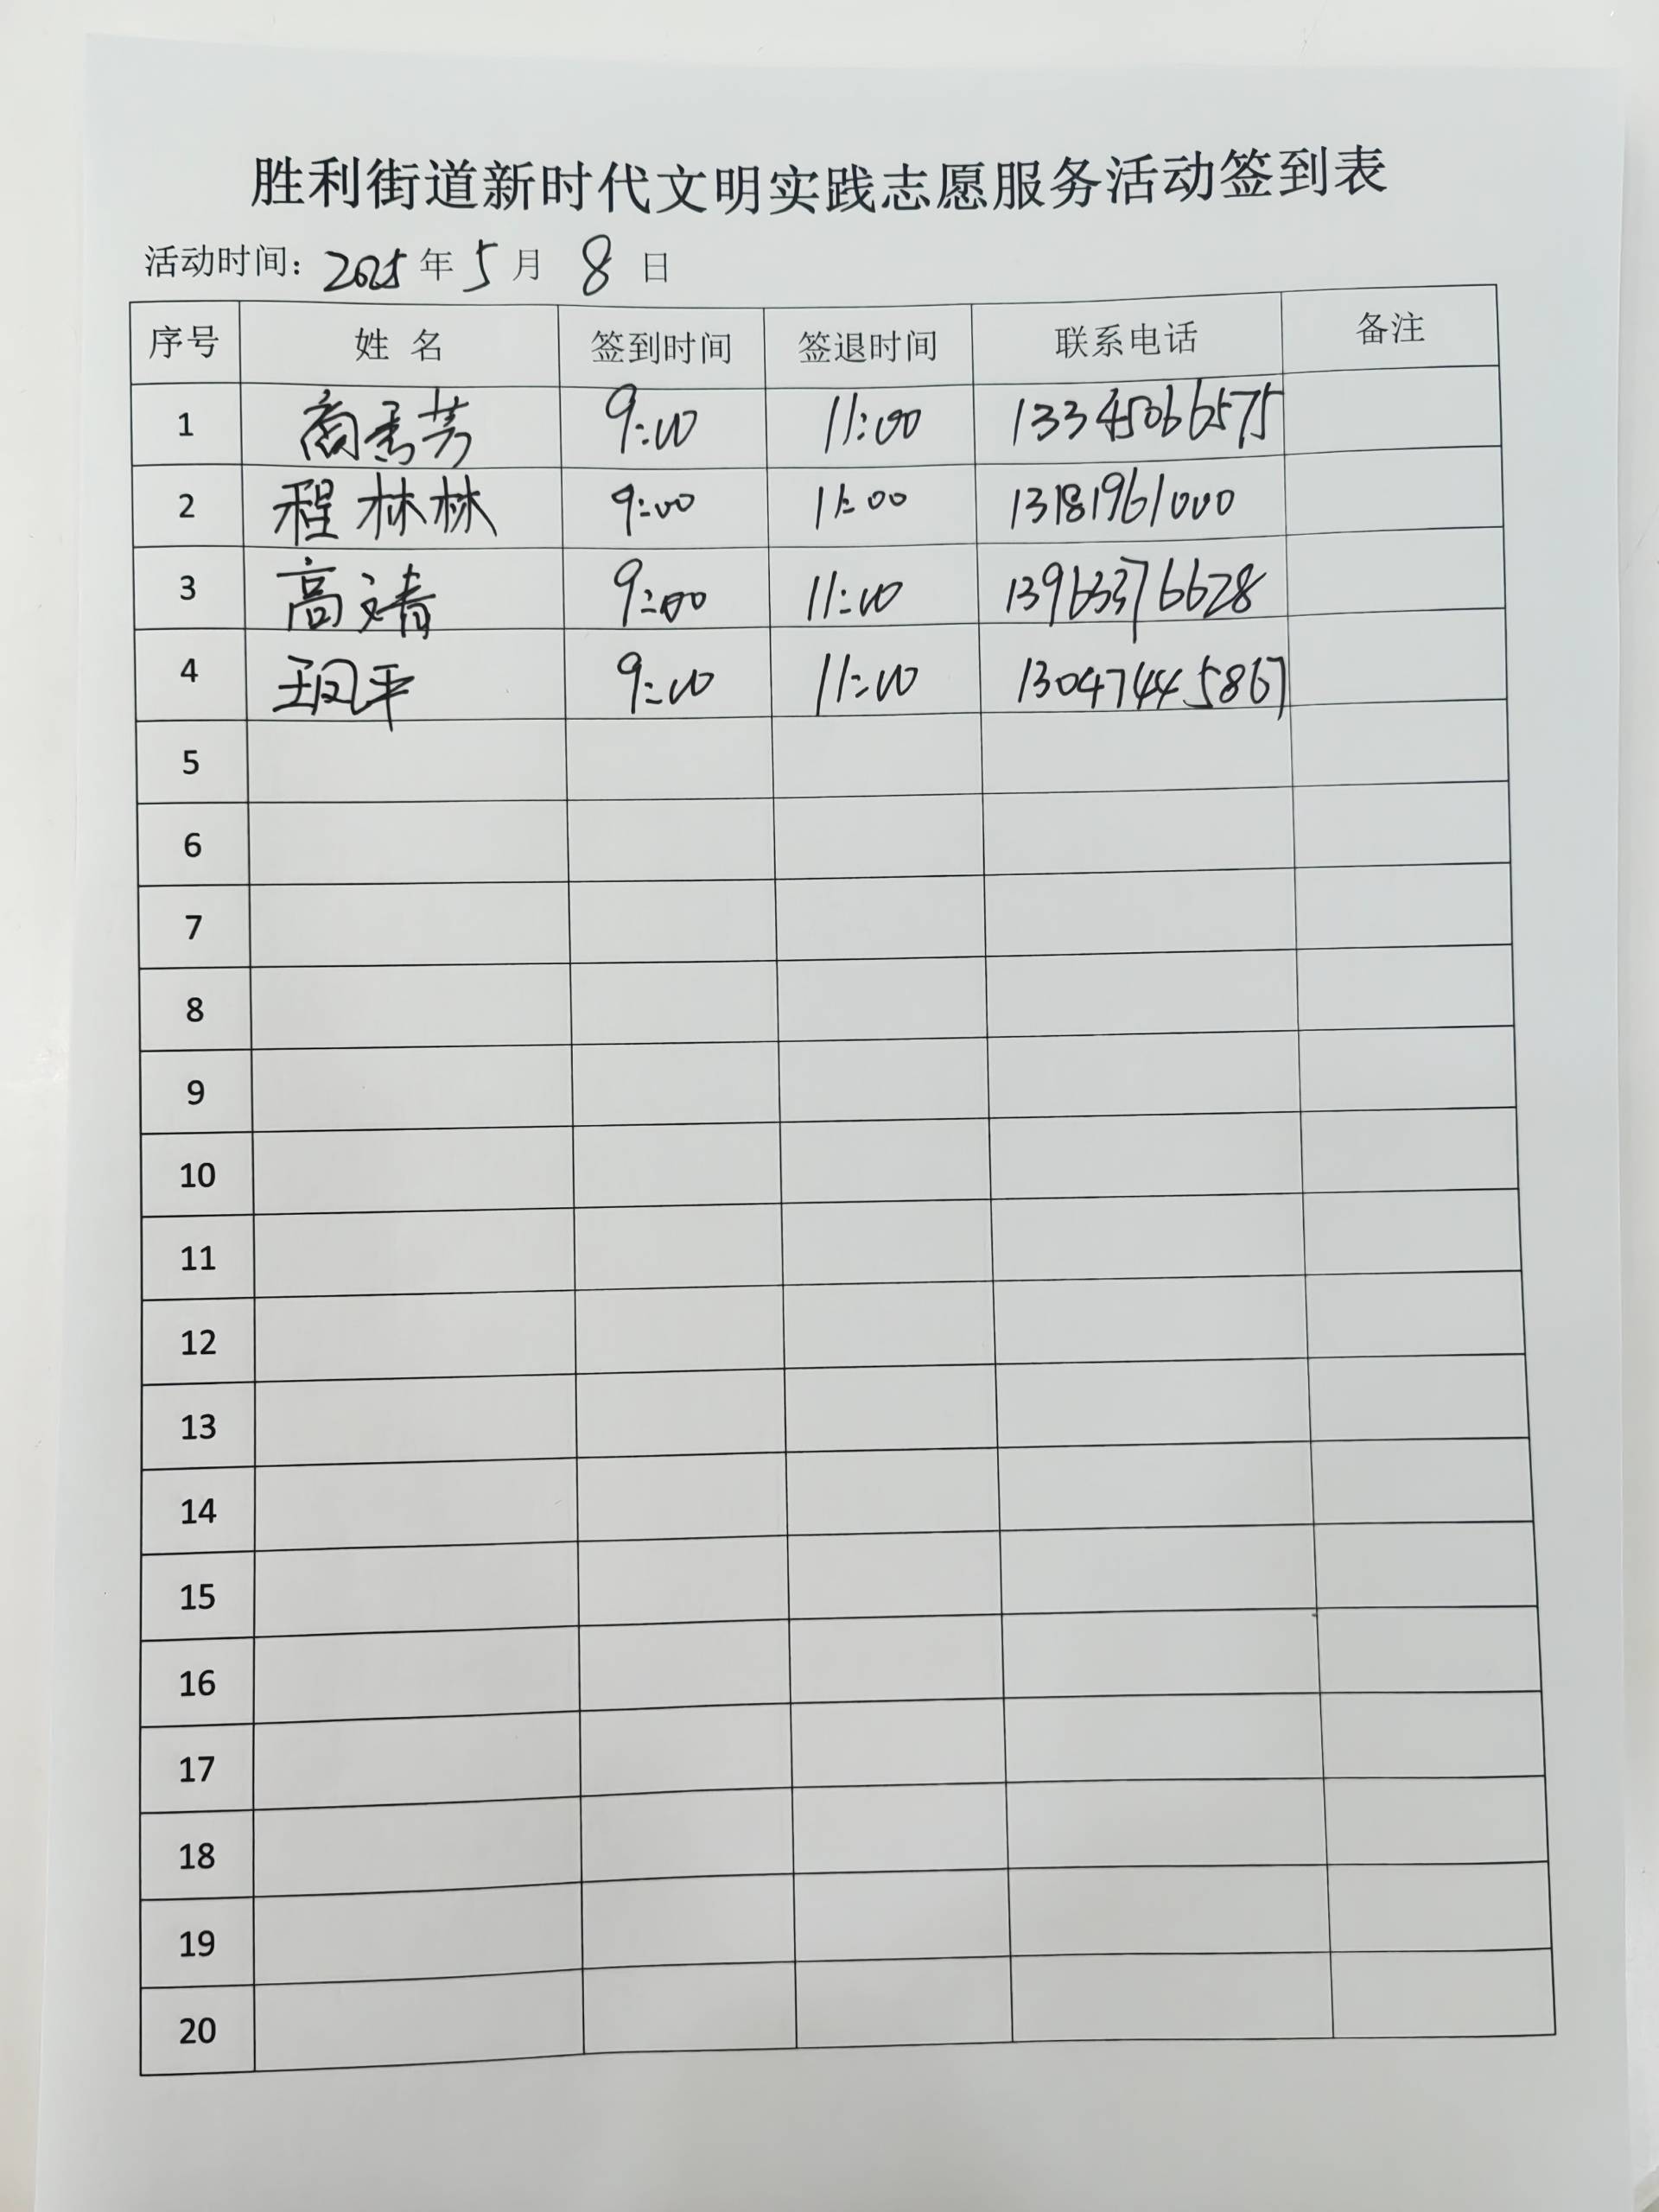 胜利街道新时代文明实践志愿服务活动签到表
活动时间：2025年5月8日
序号 姓 名 签到时间 签退时间 联系电话 备注
1 商秀芳 9:00 11:00 13345066575
2 程林林 9:00 11:00 13181961000
3 高文靖 9:00 11:00 13963376628
4 王凤平 9:00 11:00 13047445867
5
6
7
8
9
10
11
12
13
14
15
16
17
18
19
20